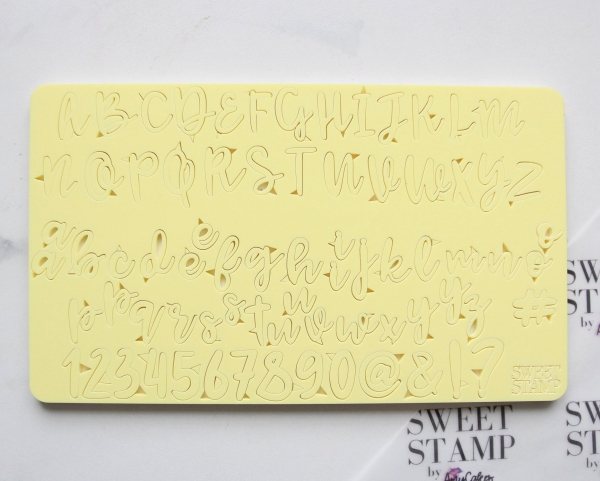 A B C D E F G H I J K L M
N O P Q R S T U V W X Y Z
a e
a b c d e f g h i j k l m n o
p p q r s s t u u v w x y y z
#
1 2 3 4 5 6 7 8 9 0 @ & ! ?
SWEET
STAMP
SWEET
STAMP
by
SWEET
STAMP
by AmyCakes